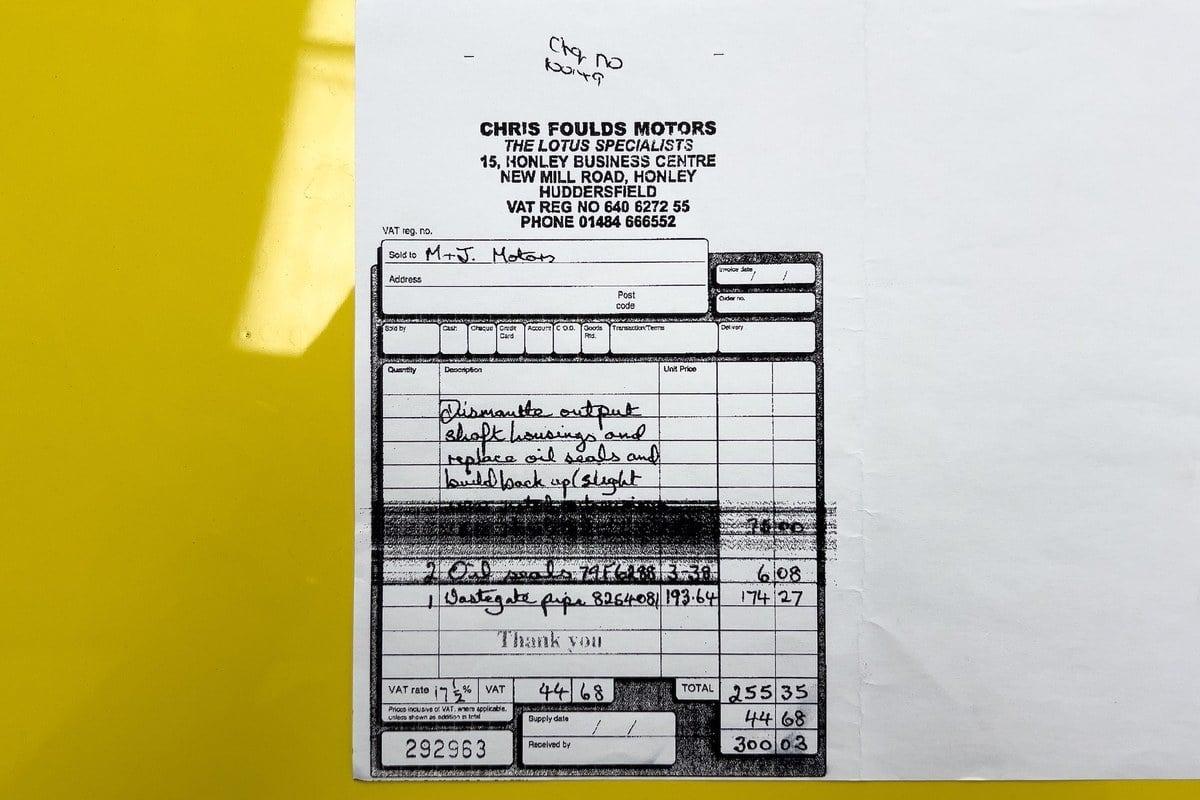 Chq no
100149
CHRIS FOULDS MOTORS
THE LOTUS SPECIALISTS
15, HONLEY BUSINESS CENTRE
NEW MILL ROAD, HONLEY
HUDDERSFIELD
VAT REG NO 640 6272 55
PHONE 01484 666552
VAT reg. no.
Sold to M+J. Motors
Address
Post code
Invoice date / /
Order no.
Sold by Cash Cheque Credit Card Account C.O.D. Goods Rtd. Transaction/Terms Delivery
Quantity Description Unit Price
Dismantle output
shaft housings and
replace oil seals and
build back up (slight
00
2 Oil seals 79F6288 3-38 6 08
1 Wastegate pipe 8264081 193.64 174 27
Thank you
VAT rate 17½% VAT 44 68 TOTAL 255 35
Prices inclusive of VAT, where applicable, unless shown as addition in total
44 68
Supply date / /
292963 Received by 300 03